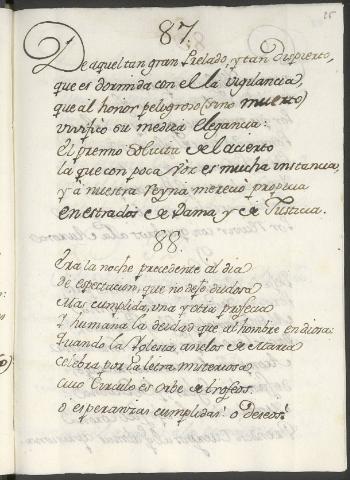 25
87.
De aquel tan gran Prelado, y tan Despierto,
que es dormida con el la vigilancia,
que al honor peligroso (sino muerto)
vivifico su medica elegancia:
El premio solicita de el acierto
la que con poca voz es mucha instancia,
y a nuestra Reyna merecio propicia
en estrados de Dama, y de Justicia.
88.
Era la noche precedente al dia
de espectacion, que no dejo dudosa
Mas cumplida, una y otra profecia
Y humana la deidad que al hombre endiosa:
Quando la Yglesia anelos de Maria
celebra por la letra misteriosa,
cuio Circulo es Orbe de trofeos,
o esperanzas cumplidas o deseos.